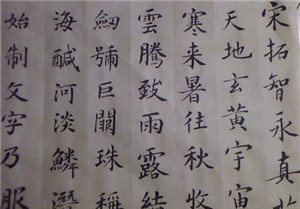 宋拓智永真
天地玄黄宇宙
寒来暑往秋收
雲騰致雨露結
劔號巨闕珠稱
海醎河淡鱗潛
始制文字乃服